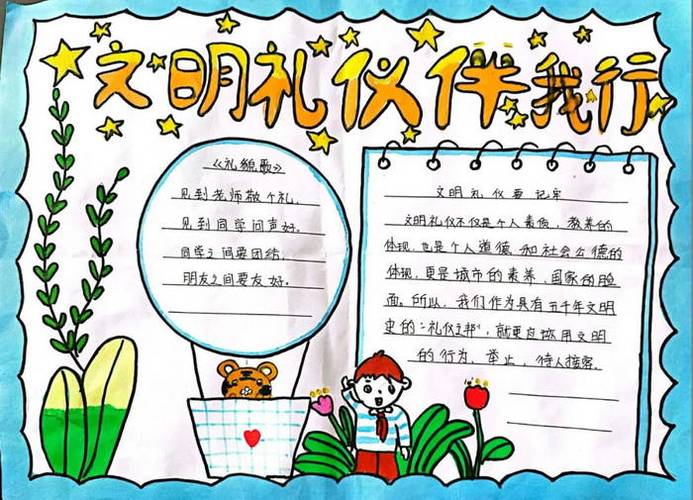 文明礼仪伴我行
《礼貌歌》
见到老师敬个礼.
见到同学问声好.
同学之间要团结.
朋友之间要友好.
文明礼仪要记牢
文明礼仪不仅是个人素质、教养的
体现,也是个人道德和社会公德的
体现,更是城市的素养、国家的脸
面。所以,我们作为具有五千年文明
史的"礼仪之邦",就更应城用文明
的行为、举止、待人接察.